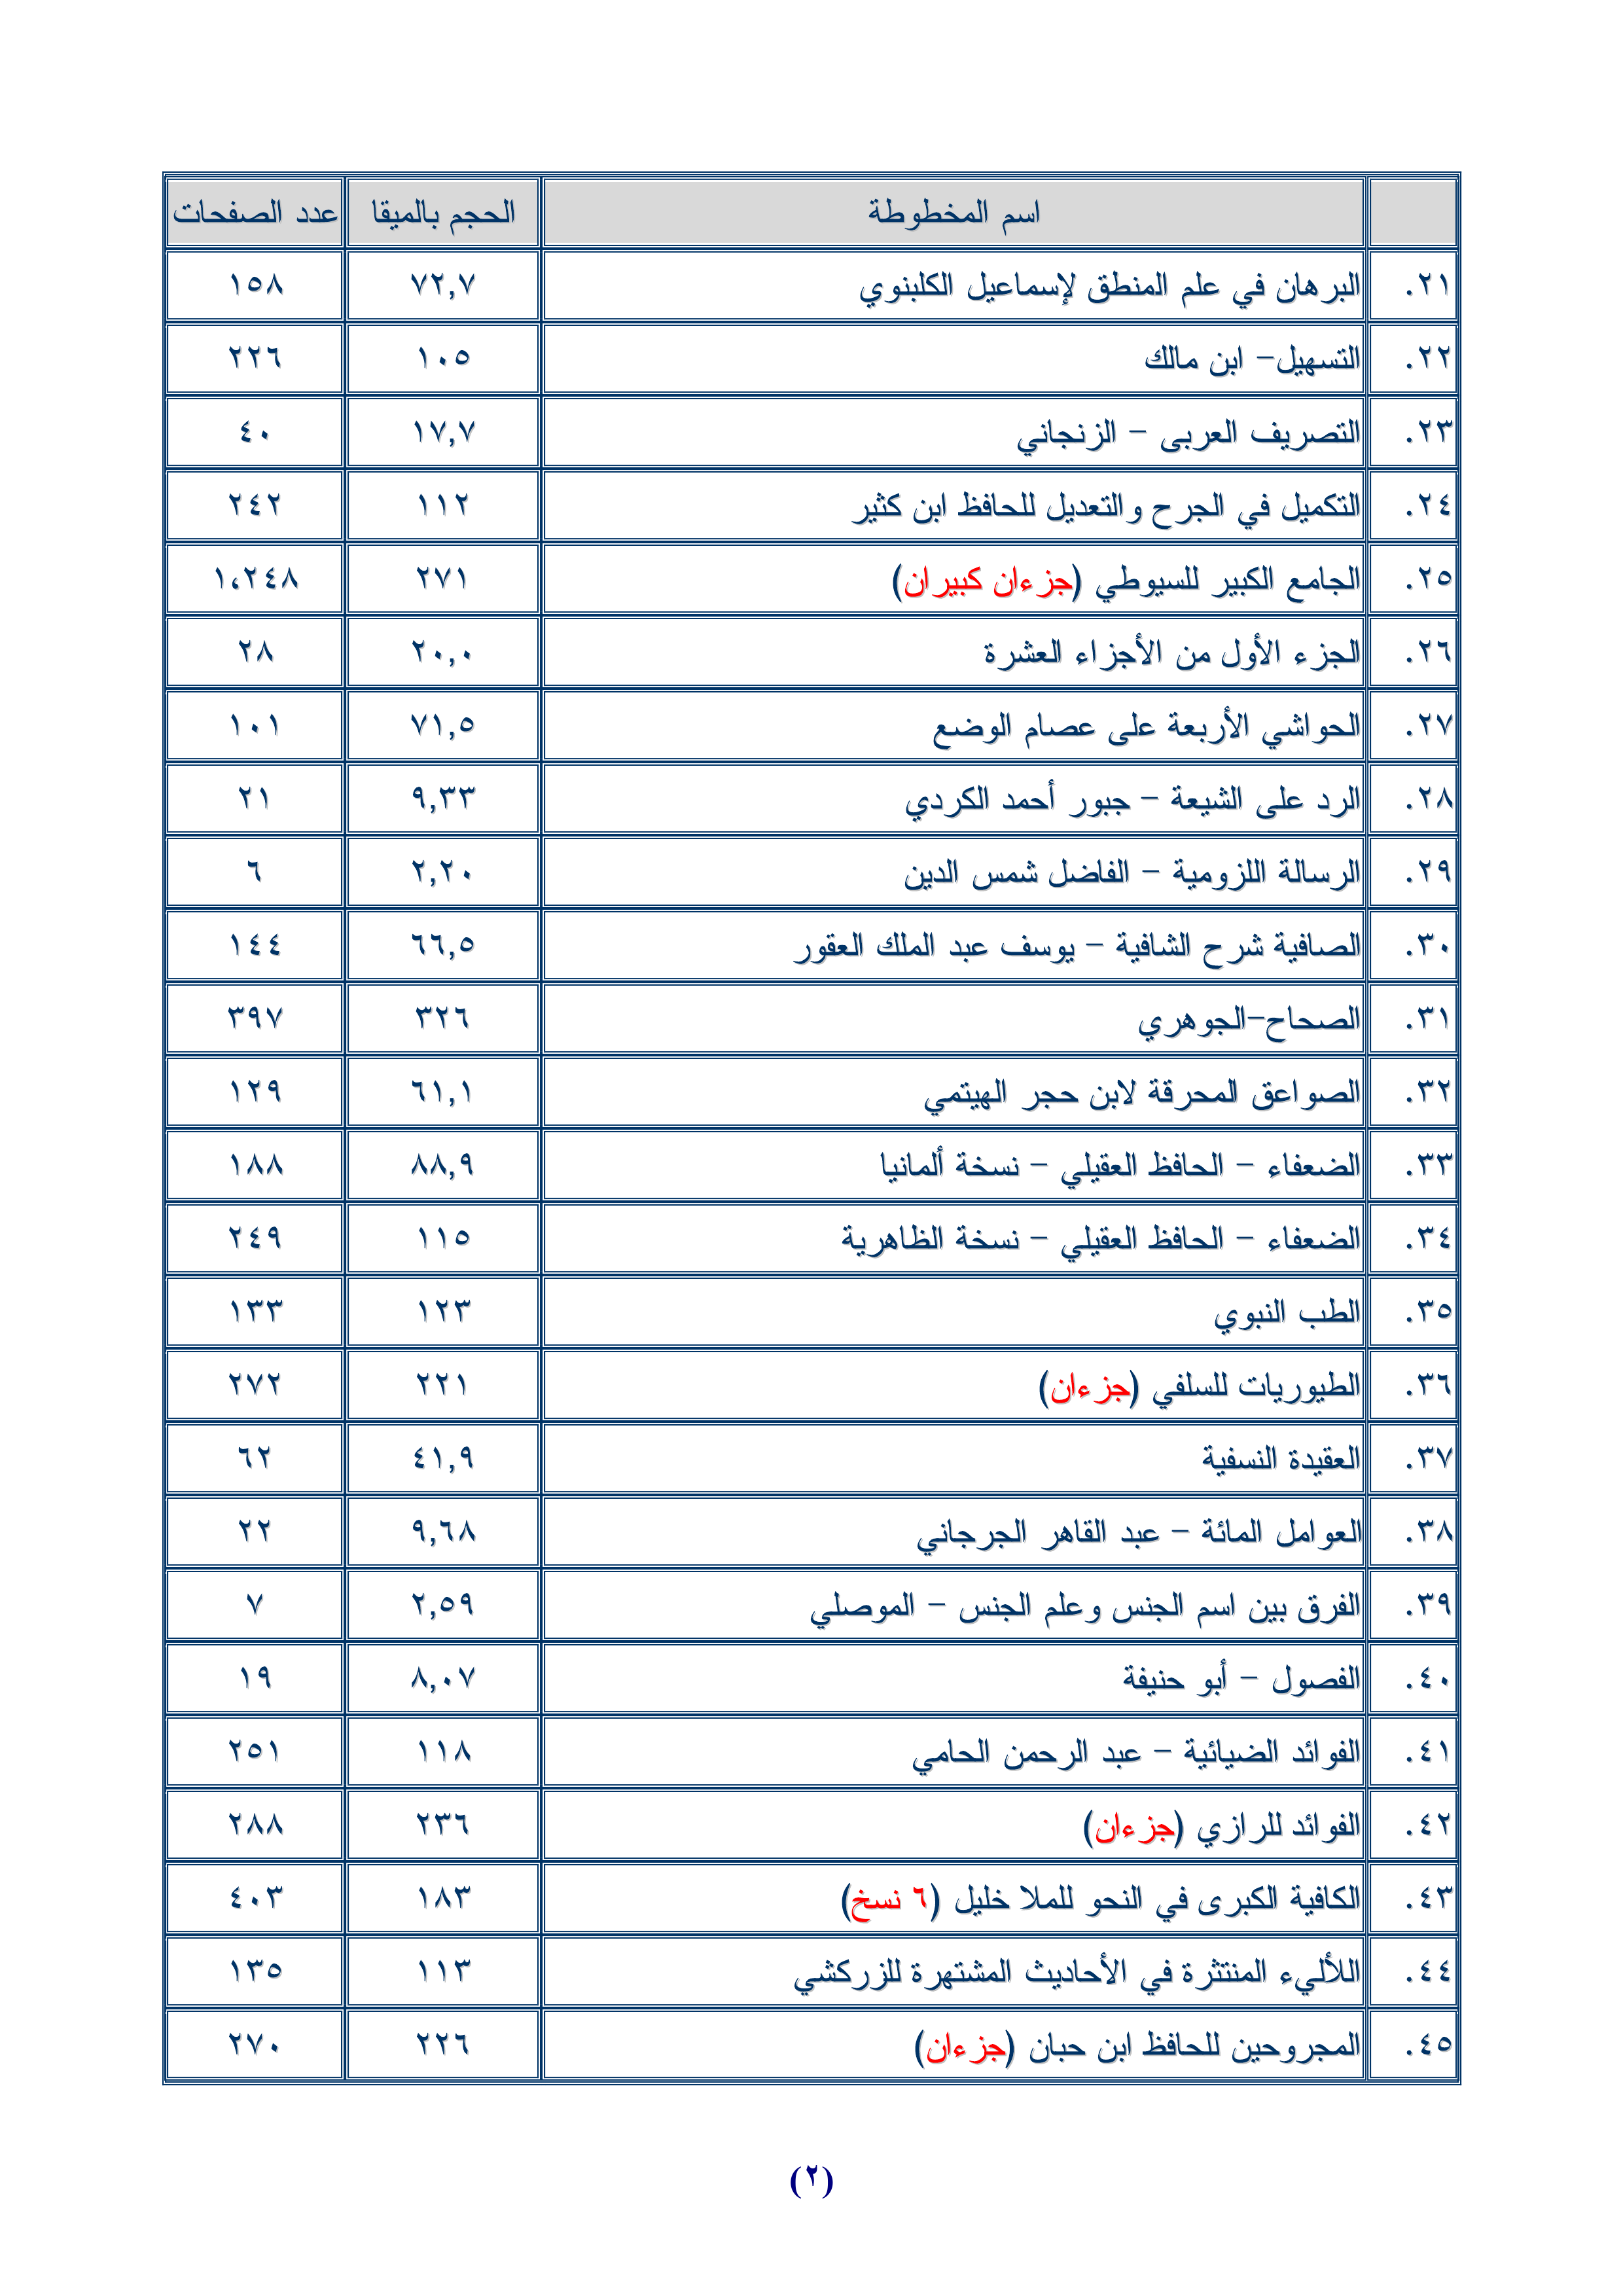 اسم المخطوطة الحجم بالميقا عدد الصفحات
٢١. البرهان في علم المنطق لإسماعيل الكلبنوي ٧٢,٧ ١٥٨
٢٢. التسهيل– ابن مالك ١٠٥ ٢٢٦
٢٣. التصريف العربى – الزنجاني ١٧,٧ ٤٠
٢٤. التكميل في الجرح والتعديل للحافظ ابن كثير ١١٢ ٢٤٢
٢٥. الجامع الكبير للسيوطي (جزءان كبيران) ٢٧١ ١،٢٤٨
٢٦. الجزء الأول من الأجزاء العشرة ٢٠,٠ ٢٨
٢٧. الحواشي الأربعة على عصام الوضع ٧١,٥ ١٠١
٢٨. الرد على الشيعة – جبور أحمد الكردي ٩,٣٣ ٢١
٢٩. الرسالة اللزومية – الفاضل شمس الدين ٢,٢٠ ٦
٣٠. الصافية شرح الشافية – يوسف عبد الملك العقور ٦٦,٥ ١٤٤
٣١. الصحاح–الجوهري ٣٢٦ ٣٩٧
٣٢. الصواعق المحرقة لابن حجر الهيتمي ٦١,١ ١٢٩
٣٣. الضعفاء – الحافظ العقيلي – نسخة ألمانيا ٨٨,٩ ١٨٨
٣٤. الضعفاء – الحافظ العقيلي – نسخة الظاهرية ١١٥ ٢٤٩
٣٥. الطب النبوي ١٢٣ ١٣٣
٣٦. الطيوريات للسلفي (جزءان) ٢٢١ ٢٧٢
٣٧. العقيدة النسفية ٤١,٩ ٦٢
٣٨. العوامل المائة – عبد القاهر الجرجاني ٩,٦٨ ٢٢
٣٩. الفرق بين اسم الجنس وعلم الجنس – الموصلي ٢,٥٩ ٧
٤٠. الفصول – أبو حنيفة ٨,٠٧ ١٩
٤١. الفوائد الضيائية – عبد الرحمن الحامي ١١٨ ٢٥١
٤٢. الفوائد للرازي (جزءان) ٢٣٦ ٢٨٨
٤٣. الكافية الكبرى في النحو للملا خليل (٦ نسخ) ١٨٣ ٤٠٣
٤٤. اللأليء المنتثرة في الأحاديث المشتهرة للزركشي ١١٣ ١٣٥
٤٥. المجروحين للحافظ ابن حبان (جزءان) ٢٢٦ ٢٧٠
(٢)